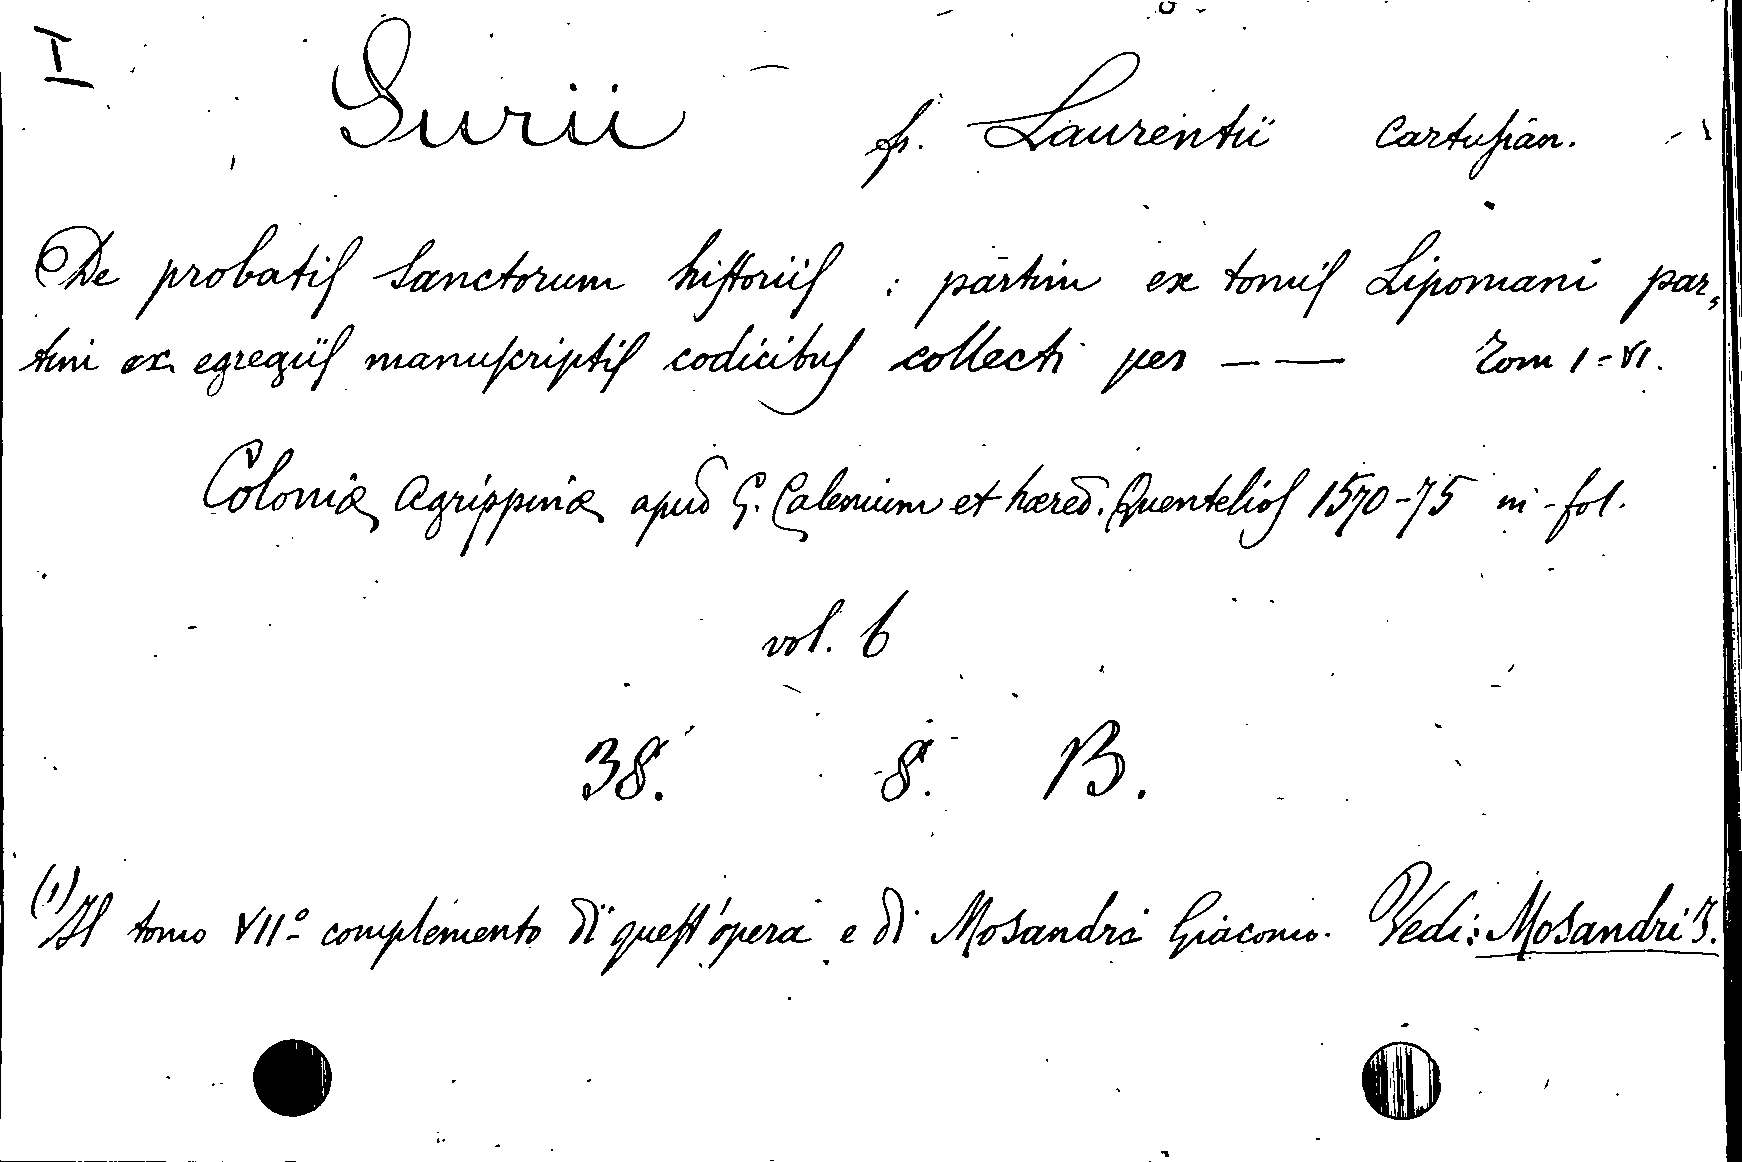 I
Surii fr. Laurentii Cartusian.
De probatis Sanctorum historiis : partim ex tomis Lipomani par,
tim ex egregiis manuscriptis codicibus collecti per — — Tom I-VI.
Coloniæ Agrippinæ apud G. Calenium et hæred. Quentelios 1570-75 in-fol.
vol. 6
38. 8. B.
(1) Il tomo VII° complemento di quest'opera e di Mosandri Giacomo. Vedi: Mosandri J.